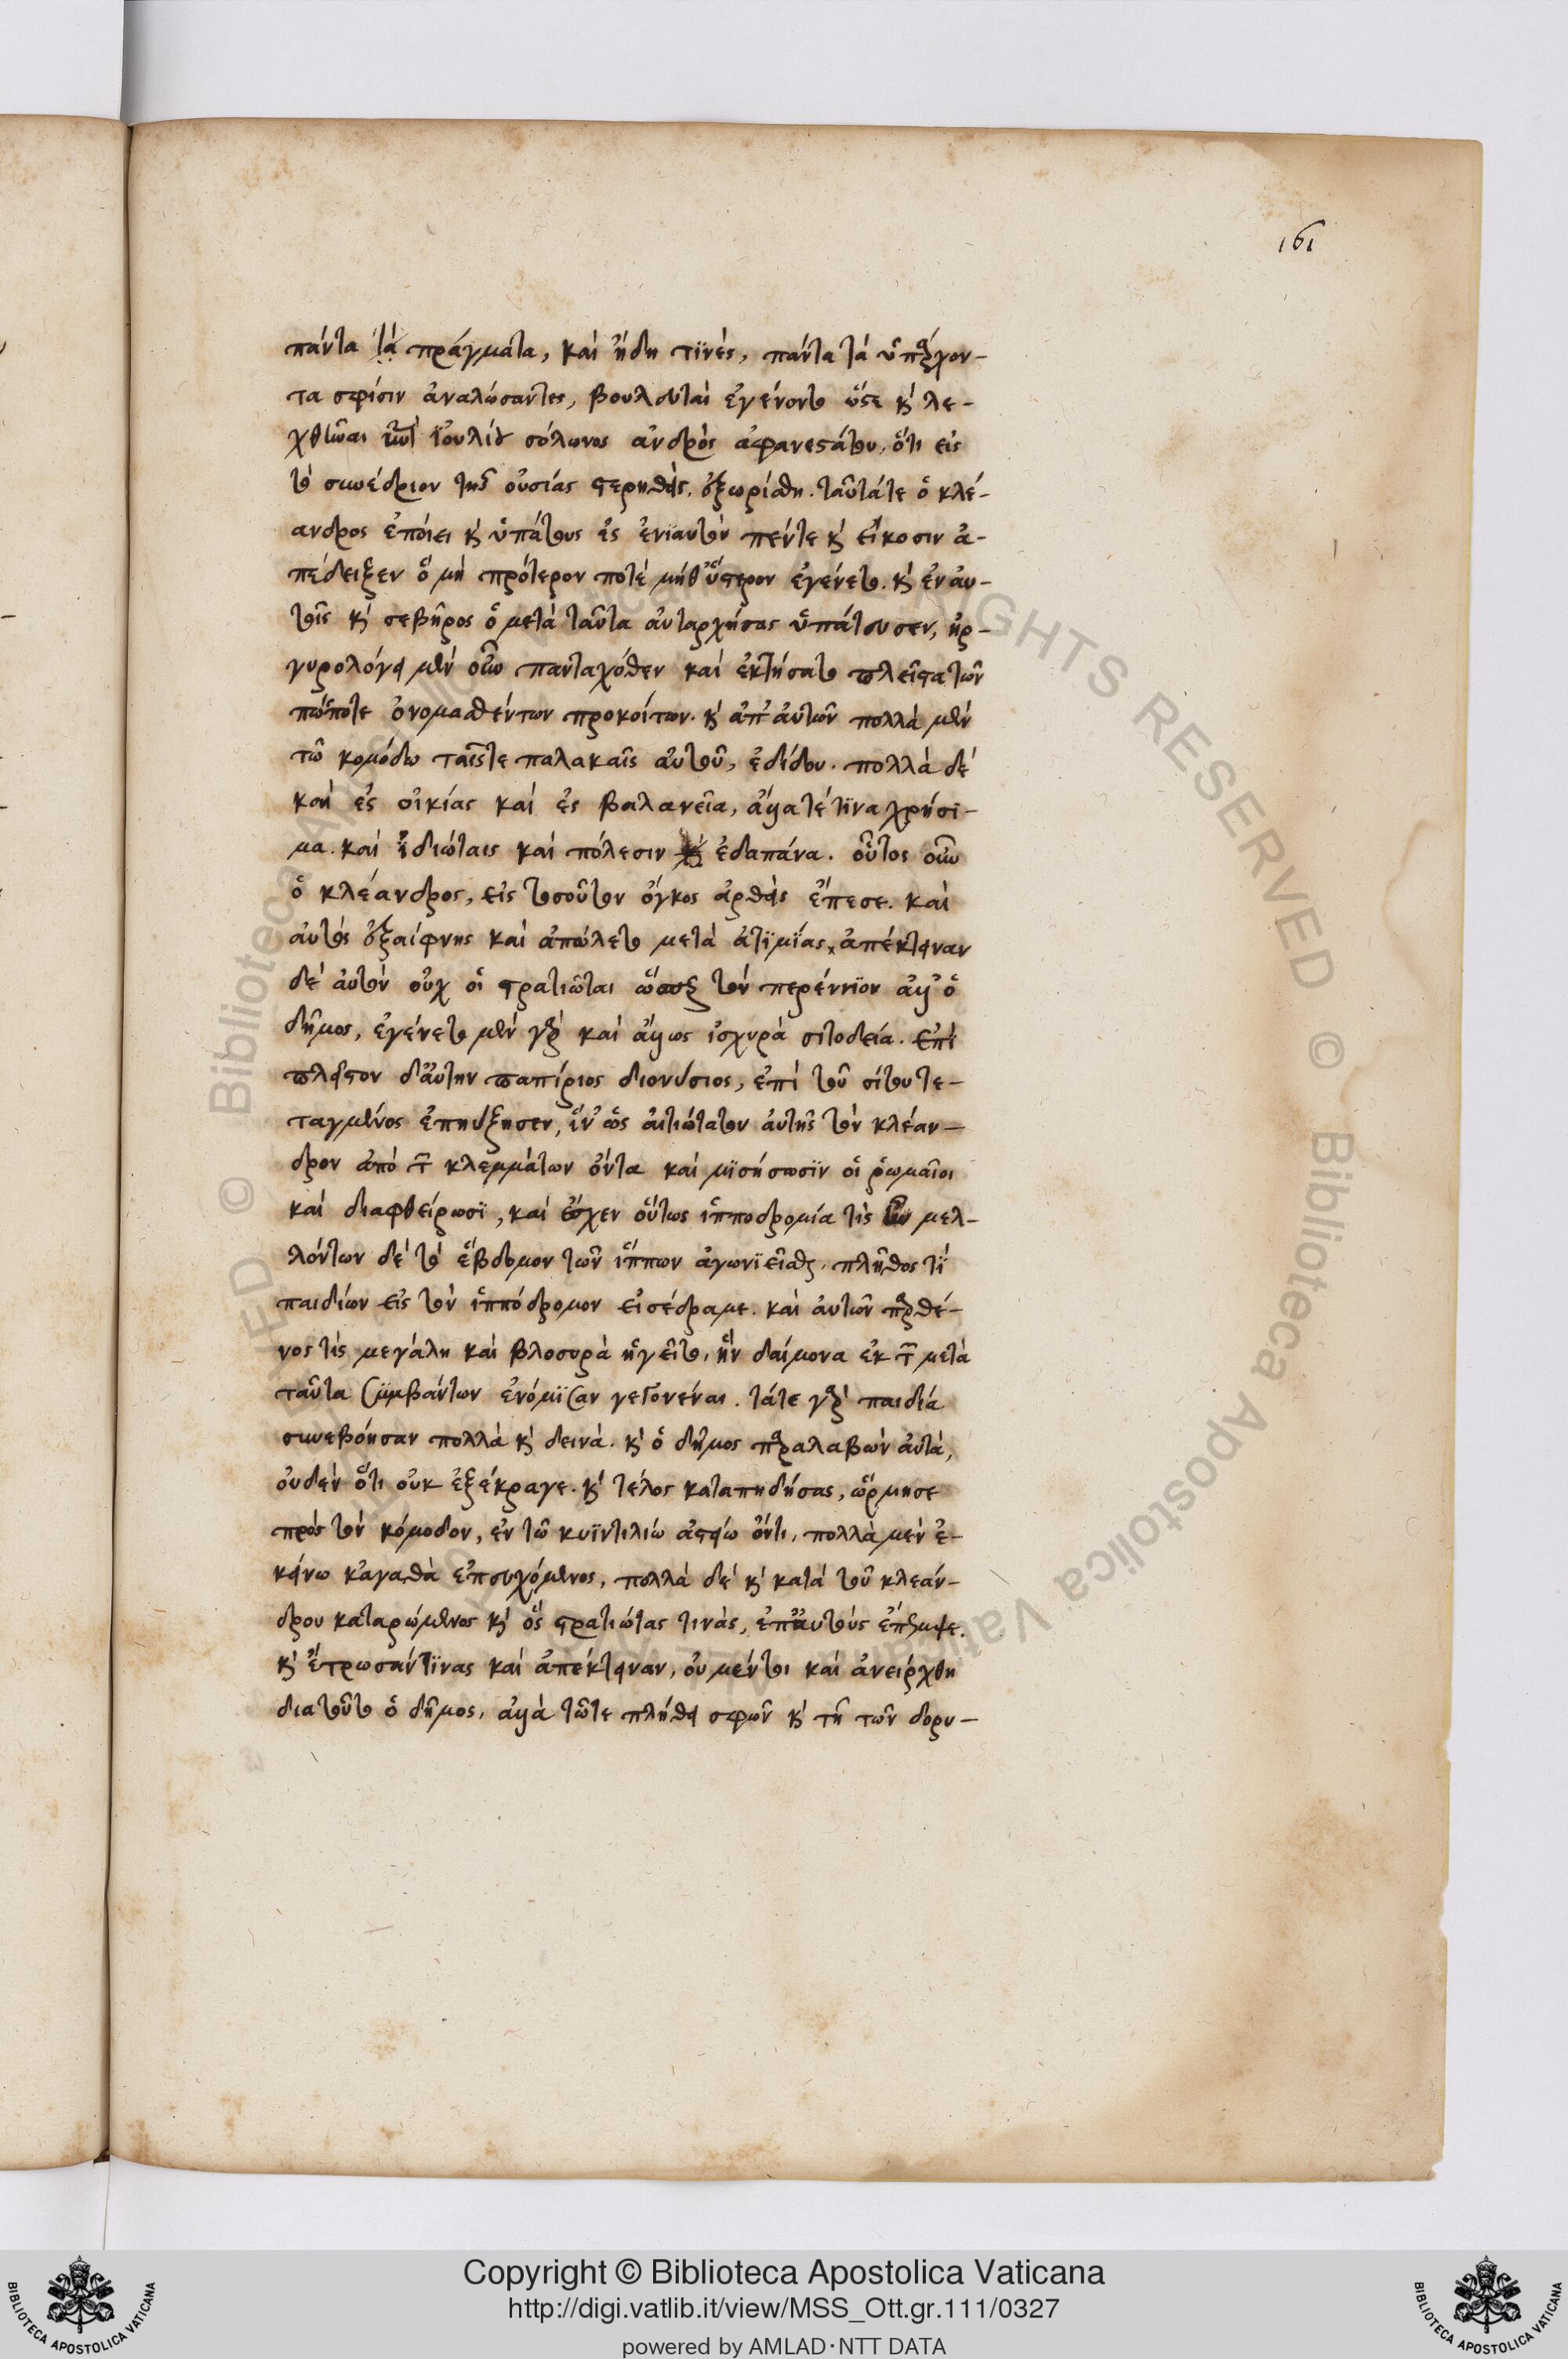 161
πάντα τὰ πράγματα, καὶ ἤδη τϊνὲς, πάντα τὰ ὑπάρχον-
τα σφίσιν ἀναλώσαντες, βουλευταὶ ἐγένοντο ὥστε κ λε-
χθῆναι ἰουλίου σόλωνος ἀνδρὸς ἀφανεστάτου, ὅτι εἰς
τὸ συνέδριον τῆς οὐσίας στερηθεὶς, ἐξωρίσθη. ταῦτά τε ὁ κλέ-
ανδρος ἐποίει κ ὑπάτους ἐς ἐνϊαυτὸν πέντε κ εἴκοσιν ἀ-
πέδειξεν ὃ μὴ πρότερον ποτὲ μήθ' ὕστερον ἐγένετο. κ ἐν αὐ-
τοῖς κ σεβῆρος ὁ μετὰ ταῦτα αὐταρχήσας ὑπάτευσεν, ἠρ-
γυρολόγει μὲν οὖν πανταχόθεν καὶ ἐκτήσατο πλεῖστα τῶν
πώποτε ὀνομασθέντων προκοίτων. κ ἀπ' αὐτῶν πολλὰ μὲν
τῶ κομόδω ταῖς τε παλακαῖς αὐτοῦ, ἐδίδου. πολλὰ δὲ
καὶ ἐς οἰκίας καὶ ἐς βαλανεῖα, ἄλλα τέ τϊνα χρήσϊ-
μα. καὶ ἰδιώταις καὶ πόλεσιν ἐδαπάνα. οὗτος οὖν
ὁ κλέανδρος, εἰς τοσοῦτον ὄγκος ἀρθεὶς ἔπεσε. καὶ
αὐτὸς ἐξαίφνης καὶ ἀπώλετο μετὰ ἀτϊμϊας, ἀπέκτειναν
δὲ αὐτὸν οὐχ οἱ στρατιῶται ὥσπερ τὸν περέννϊον ἀλλ' ὁ
δῆμος, ἐγένετο μὲν γὰρ καὶ ἄλλως ἰσχυρὰ σιτοδεία. ἐπὶ
πλεῖστον δ' αὐτὴν παπίριος διονύσιος, ἐπὶ τοῦ σίτου τε-
ταγμένος ἐπηύξησεν, ἵν' ὡς αἰτιώτατον αὐτῆς τὸν κλέαν-
δρον ἀπὸ τῶν κλεμμάτων ὄντα καὶ μϊσήσωσϊν οἱ ῥωμαῖοι
καὶ διαφθείρωσϊ, καὶ ἔσχεν οὕτως ἱπποδρομία τὶς ἦν μελ-
λόντων δὲ τὸ ἕβδομον τῶν ἵππων ἀγωνϊεῖσθαι, πλῆθος τϊ
παιδίων εἰς τὸν ἱππόδρομον εἰσέδραμε. καὶ αὐτῶν παρθέ-
νος τὶς μεγάλη καὶ βλοσυρὰ ἡγεῖτο, ἣν δαίμονα ἐκ τῶν μετὰ
ταῦτα συμβάντων ἐνόμϊσαν γεγονέναι. τά τε γὰρ παιδία
συνεβόησαν πολλὰ κ δεινά. κ ὁ δῆμος παραλαβὼν αὐτὰ,
οὐδὲν ὅτι οὐκ ἐξέκραγε. κ τέλος καταπηδήσας, ὥρμησε
πρὸς τὸν κόμοδον, ἐν τῶ κυϊντιλίω ἀστείω ὄντι, πολλὰ μὲν ἐ-
κείνω κἀγαθὰ ἐπευχόμενος, πολλὰ δὲ κ κατὰ τοῦ κλεάν-
δρου καταρώμενος κ ὃς στρατιώτας τινὰς, ἐπ' αὐτοὺς ἔπεμψε.
κ ἔτρωσάν τϊνας καὶ ἀπέκτειναν, οὐ μέντοι καὶ ἀνείρχθη
διατοῦτο ὁ δῆμος, ἀλλὰ τῶ τε πλήθει σφῶν κ τῆ τῶν δορυ-
Copyright © Biblioteca Apostolica Vaticana
http://digi.vatlib.it/view/MSS_Ott.gr.111/0327
powered by AMLAD·NTT DATA